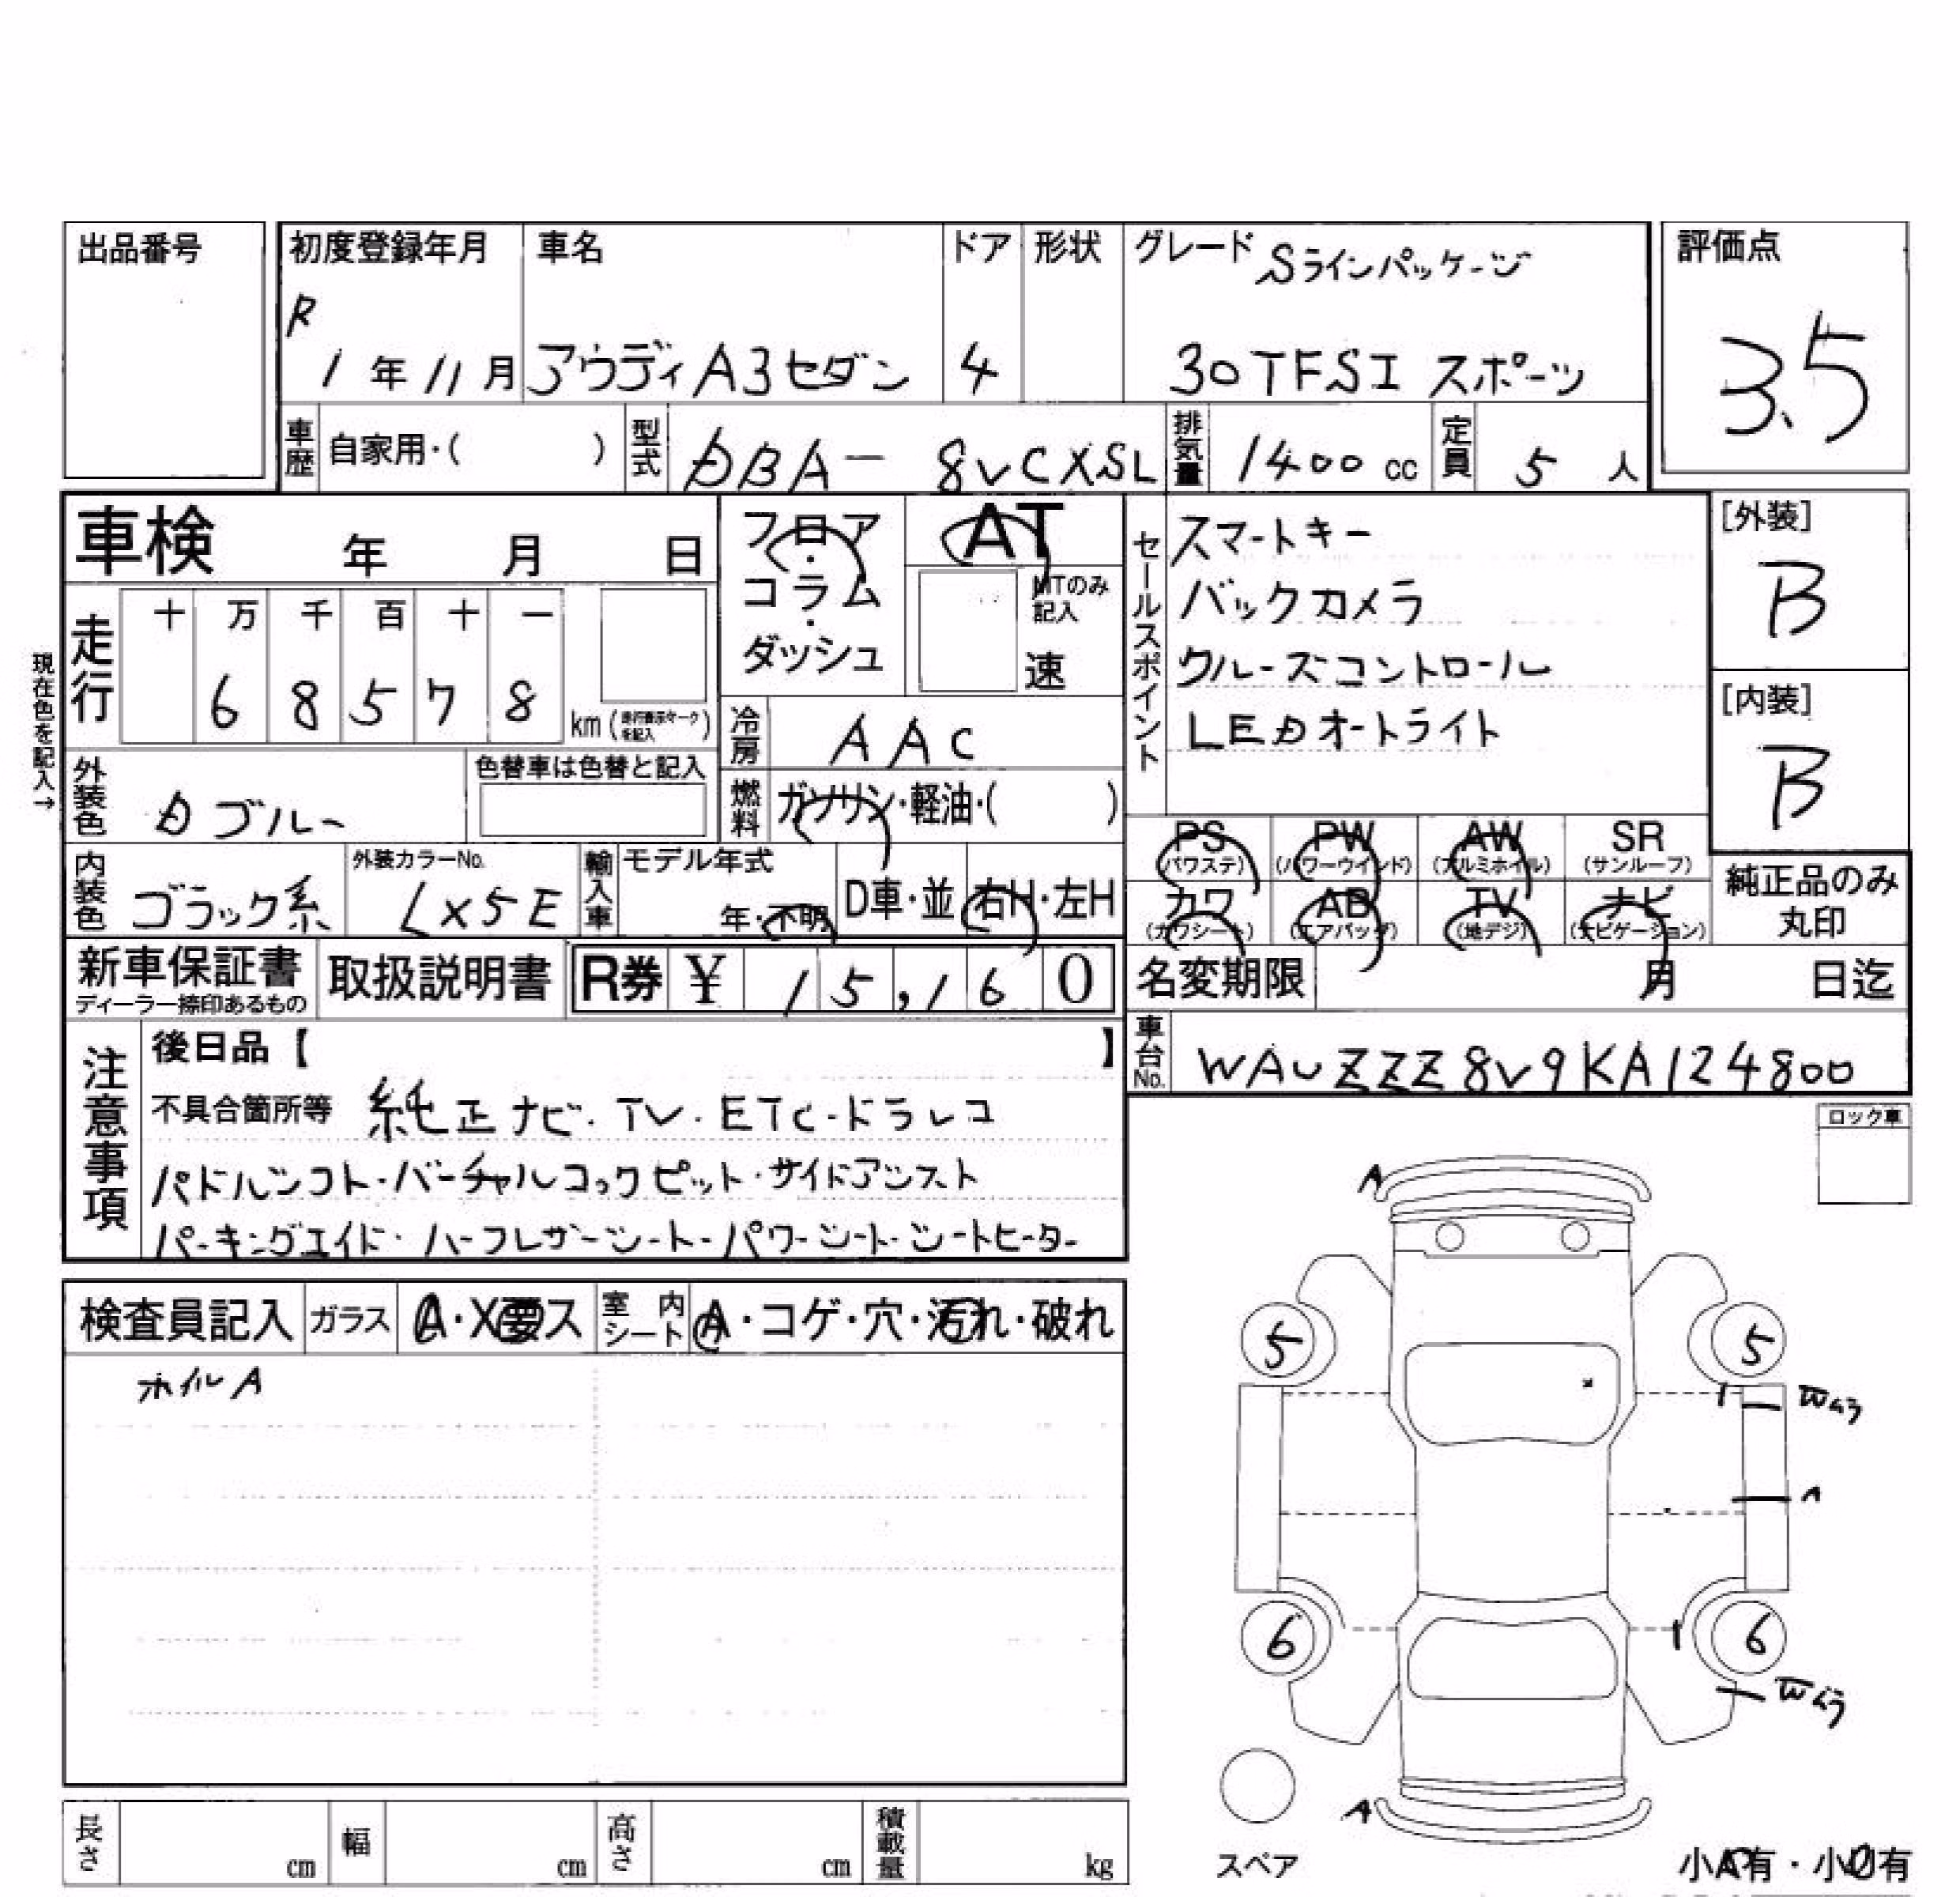 出品番号
初度登録年月
R
1 年 11 月
車名
アウディA3セダン
ドア
4
形状
グレード Sラインパッケージ
30TFSI スポーツ
評価点
3.5
車歴 自家用・( )
型式 DBA- 8VCXSL
排気量 1400 cc
定員 5 人
車検 年 月 日
フロア・コラム・ダッシュ
AT
MTのみ記入
速
現在色を記入→
走行
十 万 千 百 十 一
6 8 5 7 8
km (走行表示マークを記入)
冷房 AAC
外装色 Dブルー
色替車は色替と記入
燃料 ガソリン・軽油・( )
内装色 ブラック系
外装カラーNo.
LX5E
輸入車
モデル年式
年・不明
D車・並
右H・左H
セールスポイント
スマートキー
バックカメラ
クルーズコントロール
LEDオートライト
[外装]
B
[内装]
B
PS (パワステ)
PW (パワーウインド)
AW (アルミホイル)
SR (サンルーフ)
カワ (カワシート)
AB (エアバッグ)
TV (地デジ)
ナビ (ナビゲーション)
純正品のみ丸印
新車保証書
ディーラー捺印あるもの
取扱説明書
R券 ¥ 15,160
名変期限 月 日迄
車台No. WAUZZZ8V9KA124800
注意事項
後日品【 】
不具合箇所等 純正ナビ・TV・ETC・ドラレコ
パドルシフト・バーチャルコックピット・サイドアシスト
パーキングエイド・ハーフレザーシート・パワーシート・シートヒーター
ロック車
検査員記入
ガラス A・X要ス
室内シート A・コゲ・穴・汚れ・破れ
ホイルA
A
5 5
1 Wムラ
A
6 1 6
Wムラ
A
スペア
小A有・小U有
長さ cm
幅 cm
高さ cm
積載量 kg